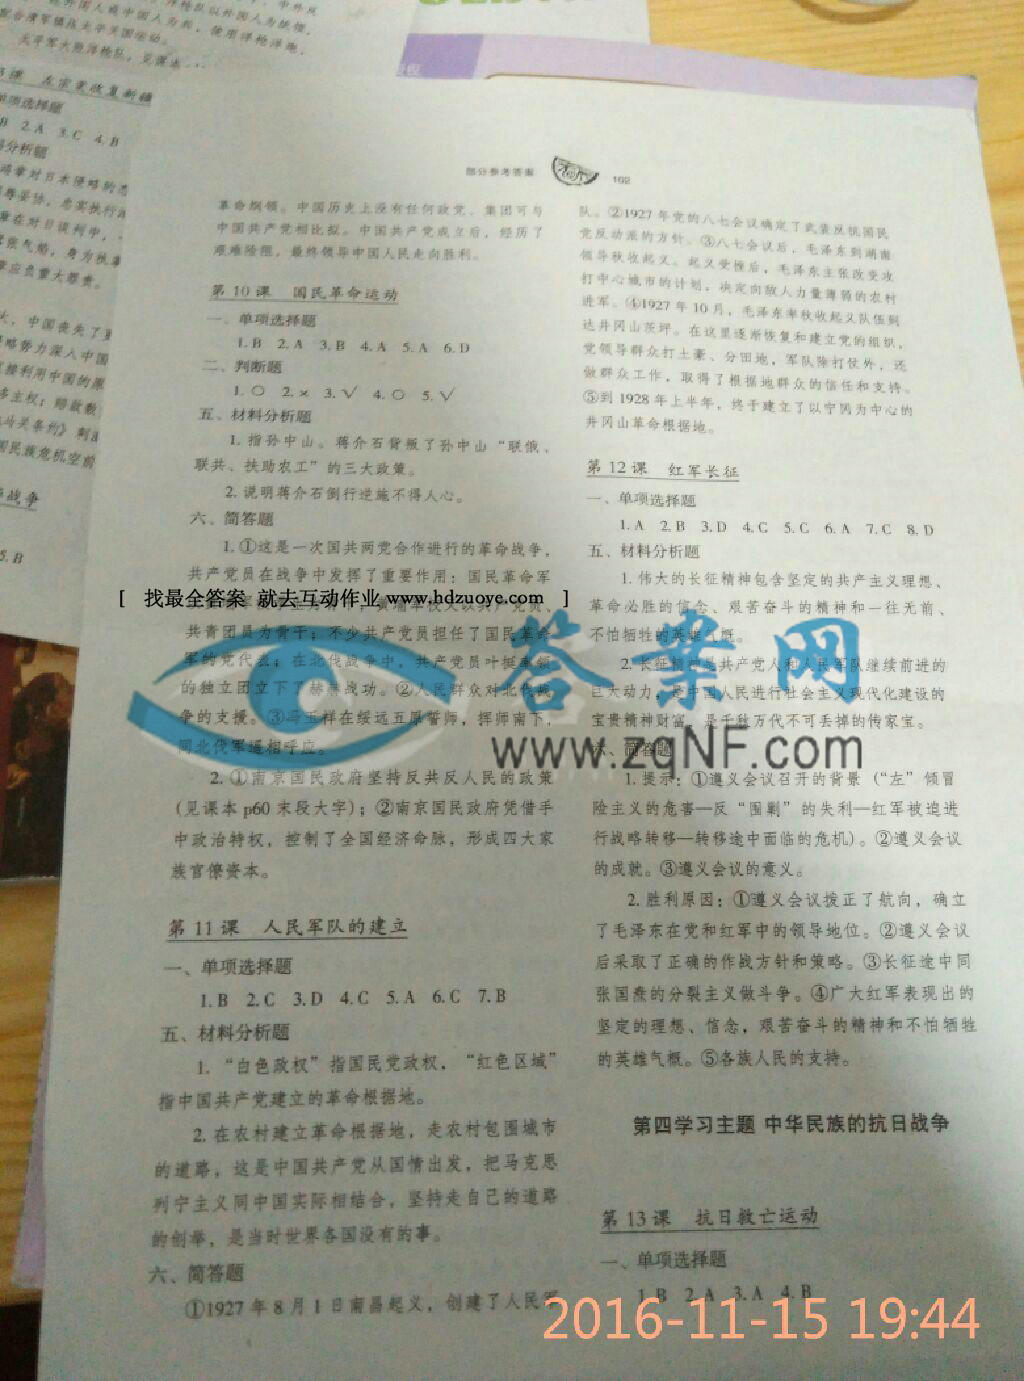 部分参考答案
162
革命纲领。中国历史上没有任何政党、集团可与
中国共产党相比拟。中国共产党成立后，经历了
艰难险阻，最终领导中国人民走向胜利。
第 10 课 国民革命运动
一、单项选择题
1. B 2. A 3. B 4. A 5. A 6. D
二、判断题
1. ○ 2. × 3. √ 4. ○ 5. √
五、材料分析题
1. 指孙中山。蒋介石背叛了孙中山“联俄，
联共、扶助农工”的三大政策。
2. 说明蒋介石倒行逆施不得人心。
六、简答题
1. ①这是一次国共两党合作进行的革命战争，
共产党员在战争中发挥了重要作用：国民革命军
[ 找最全答案 就去互动作业 www.hdzuoye.com ]
共青团员为骨干；不少共产党员担任了国民革命
军的党代表；在北伐战争中，共产党员叶挺率领
的独立团立下了赫赫战功。②人民群众对北伐战
争的支援。③冯玉祥在绥远五原誓师，挥师南下，
同北伐军遥相呼应。
2. ①南京国民政府坚持反共反人民的政策
(见课本 p60 末段大字)；②南京国民政府凭借手
中政治特权，控制了全国经济命脉，形成四大家
族官僚资本。
第 11 课 人民军队的建立
一、单项选择题
1. B 2. C 3. D 4. C 5. A 6. C 7. B
五、材料分析题
1. “白色政权”指国民党政权，“红色区域”
指中国共产党建立的革命根据地。
2. 在农村建立革命根据地，走农村包围城市
的道路，这是中国共产党从国情出发，把马克思
列宁主义同中国实际相结合，坚持走自己的道路
的创举，是当时世界各国没有的事。
六、简答题
①1927 年 8 月 1 日南昌起义，创建了人民军
队。②1927 年党的八七会议确定了武装反抗国民
党反动派的方针。③八七会议后，毛泽东到湖南
领导秋收起义。起义受挫后，毛泽东主张改变攻
打中心城市的计划，决定向敌人力量薄弱的农村
进军。④1927 年 10 月，毛泽东率秋收起义队伍到
达井冈山茨坪。在这里逐渐恢复和建立党的组织，
党领导群众打土豪、分田地，军队除打仗外，还
做群众工作，取得了根据地群众的信任和支持。
⑤到 1928 年上半年，终于建立了以宁冈为中心的
井冈山革命根据地。
第 12 课 红军长征
一、单项选择题
1. A 2. B 3. D 4. C 5. C 6. A 7. C 8. D
五、材料分析题
1. 伟大的长征精神包含坚定的共产主义理想、
革命必胜的信念、艰苦奋斗的精神和一往无前、
不怕牺牲的英雄气概。
2. 长征精神是共产党人和人民军队继续前进的
巨大动力，是中国人民进行社会主义现代化建设的
宝贵精神财富，是千秋万代不可丢掉的传家宝。
六、简答题
1. 提示：①遵义会议召开的背景（“左”倾冒
险主义的危害—反“围剿”的失利—红军被迫进
行战略转移—转移途中面临的危机）。②遵义会议
的成就。③遵义会议的意义。
2. 胜利原因：①遵义会议拨正了航向，确立
了毛泽东在党和红军中的领导地位。②遵义会议
后采取了正确的作战方针和策略。③长征途中同
张国焘的分裂主义做斗争。④广大红军表现出的
坚定的理想、信念，艰苦奋斗的精神和不怕牺牲
的英雄气概。⑤各族人民的支持。
第四学习主题 中华民族的抗日战争
第 13 课 抗日救亡运动
一、单项选择题
1. B 2. A 3. A 4. B
答案网
www.zqNF.com
2016-11-15 19:44